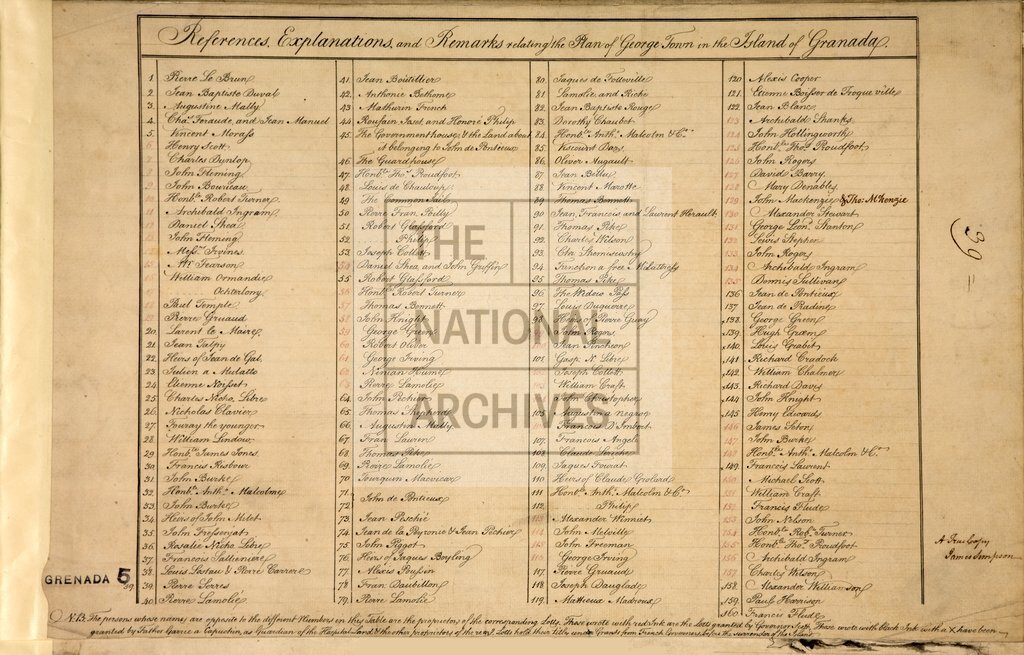 References, Explanations, and Remarks relating the Plan of George Town in the Island of Granada.
1. Pierre Le Brun
2. Jean Baptiste Duval
3. Augustine Mally
4. Chas. Feraude, and Jean Manuel
5. Vincent Morass
6. Henry Scott
7. Charles Dunlop
8. John Fleming
9. John Bouvieau
10. Honble. Robert Turner
11. Archibald Ingram
12. Daniel Shea
13. John Fleming
14. Messrs. Irvines
15. Mr. Pearson
William Ormandie
Ochterlony
Paul Temple
Pierre Gruaud
20. Larent le Maire
21. Jean Talpy
22. Heirs of Jean de Gal
23. Julien a Mulatto
24. Etienne Noisset
25. Charles Nicho. Libre
26. Nicholas Clavier
27. Fouray the younger
28. William Lindow
29. Honble. James Jones
30. Francis Risbour
31. John Burke
32. Honble. Anth. Malcolme
33. John Burke
34. Heirs of John Milet
35. John Fressenjat
36. Rosalie Nicho. Libre
37. Francois Sattaniere
38. Louis Lastau & Pierre Carrere
39. Pierre Serres
40. Pierre Lamolie
41. Jean Boutillier
42. Anthonie Bethome
43. Mathurin French
44. Roufain Jaset and Honoré Philip
45. The Government house, & the Land about
it belonging to John de Ponteux
46. The Guardhouse
47. Honble. Thos. Proudfoot
48. Louis de Chauloup
49. The Common Jail
50. Pierre Fran. Poilly
51. Robert Glassford
52. Philip
53. Joseph Collett
54. Daniel Shea and John Griffin
55. Robert Glassford
56. Honble. Robert Turner
57. Thomas Bennett
58. John Knight
59. George Green
60. Robert Oliver
61. George Irving
62. Ninian Hume
63. Pierre Lamolie
64. John Pechier
65. Thomas Shepherd
66. Augustin Mally
67. Fran. Laurin
68. Thomas Pike
69. Pierre Lamolie
70. Fourquin Macvicar
71.
72. John de Pontieux
73. Jean Peschié
74. Jean de la Peyronie & Jean Péchier
75. John Piggot
76. Heirs of Jaques Boyling
77. Alexis Poussin
78. Fran. Daubitton
79. Pierre Lamolie
80. Jaques de Frotteville
81. Lamolie, and Riche
82. Jean Baptiste Rouge
83. Dorothy Chaubet
84. Honble. Anth. Malcolm & Co.
85. Viscount Dags
86. Oliver Augault
87. Jean Belleu
88. Vincent Marotte
89. Thomas Bennett
90. Jean, Francois and Laurent Herault
91. Thomas Pike
92. Charles Wilson
93. Ctn. Thorniscasby
94. Function a free Mulattress
95. Thomas Pike
96. The Widow Pass
97. Louis Duquiare
98. Heirs of Pierre Guay
John Rogers
Jean Pinchon
101. Gasp. N. Libre
Joseph Collett
William Craft
John Christophers
105. Augustin a negro
Francois D'Imbert
107. Francois Angel
108. Claude Loriche
109. Jaques Fourat
110. Heirs of Claude Groliard
111. Honble. Anth. Malcolm & Co.
112. Philip
113. Alexander Winniet
114. John Melville
115. John Freeman
116. George Irving
117. Pierre Gruaud
118. Joseph Dauglade
119. Mattieux Madroux
120. Alexis Cooper
121. Etienne Boisser de Froqueville
122. Jean Blanc
123. Archibald Shanks
124. John Hollingworth
125. Honble. Thos. Proudfoot
126. John Rogers
127. David Barry
128. Mary Denables
129. John Mackenzie & Tho: McKenzie
130. Alexander Stewart
131. George Leon. Stanton
132. Lewis Stephen
133. John Rogers
134. Archibald Ingram
135. Dennis Sullivan
136. Jean de Pontieux
137. Jean de Radine
138. George Green
139. Hugh Graem
140. Louis Grabit
141. Richard Cradock
142. William Chalmer
143. Richard Davis
144. John Knight
145. Henry Edwards
146. James Seton
147. John Burke
148. Honble. Anth. Malcolm & Co.
149. Francois Laurent
150. Michael Scott
151. William Craft
152. Francis Flude
153. John Nelson
154. Honble. Robt. Turner
155. Honble. Thos. Proudfoot
156. Archibald Ingram
157. Charles Wilson
158. Alexander Williamson
159. Paul Harrison
160. Francis Flude
N.B. The persons whose names are opposite to the different Numbers in this Table are the proprietors of the corresponding Lotts, Those wrote with red Ink are the Lotts granted by Governor Scott, Those wrote with black Ink with a X have been
granted by Father Garrie a Capuchin, as Guardian of the Hospital Land, & the other proprietors of the rest Lotts hold their titles under Grants from French Governors before the surrender of the Island.
A True Copy
James Simpson
39
GRENADA 5
THE
NATIONAL
ARCHIVES